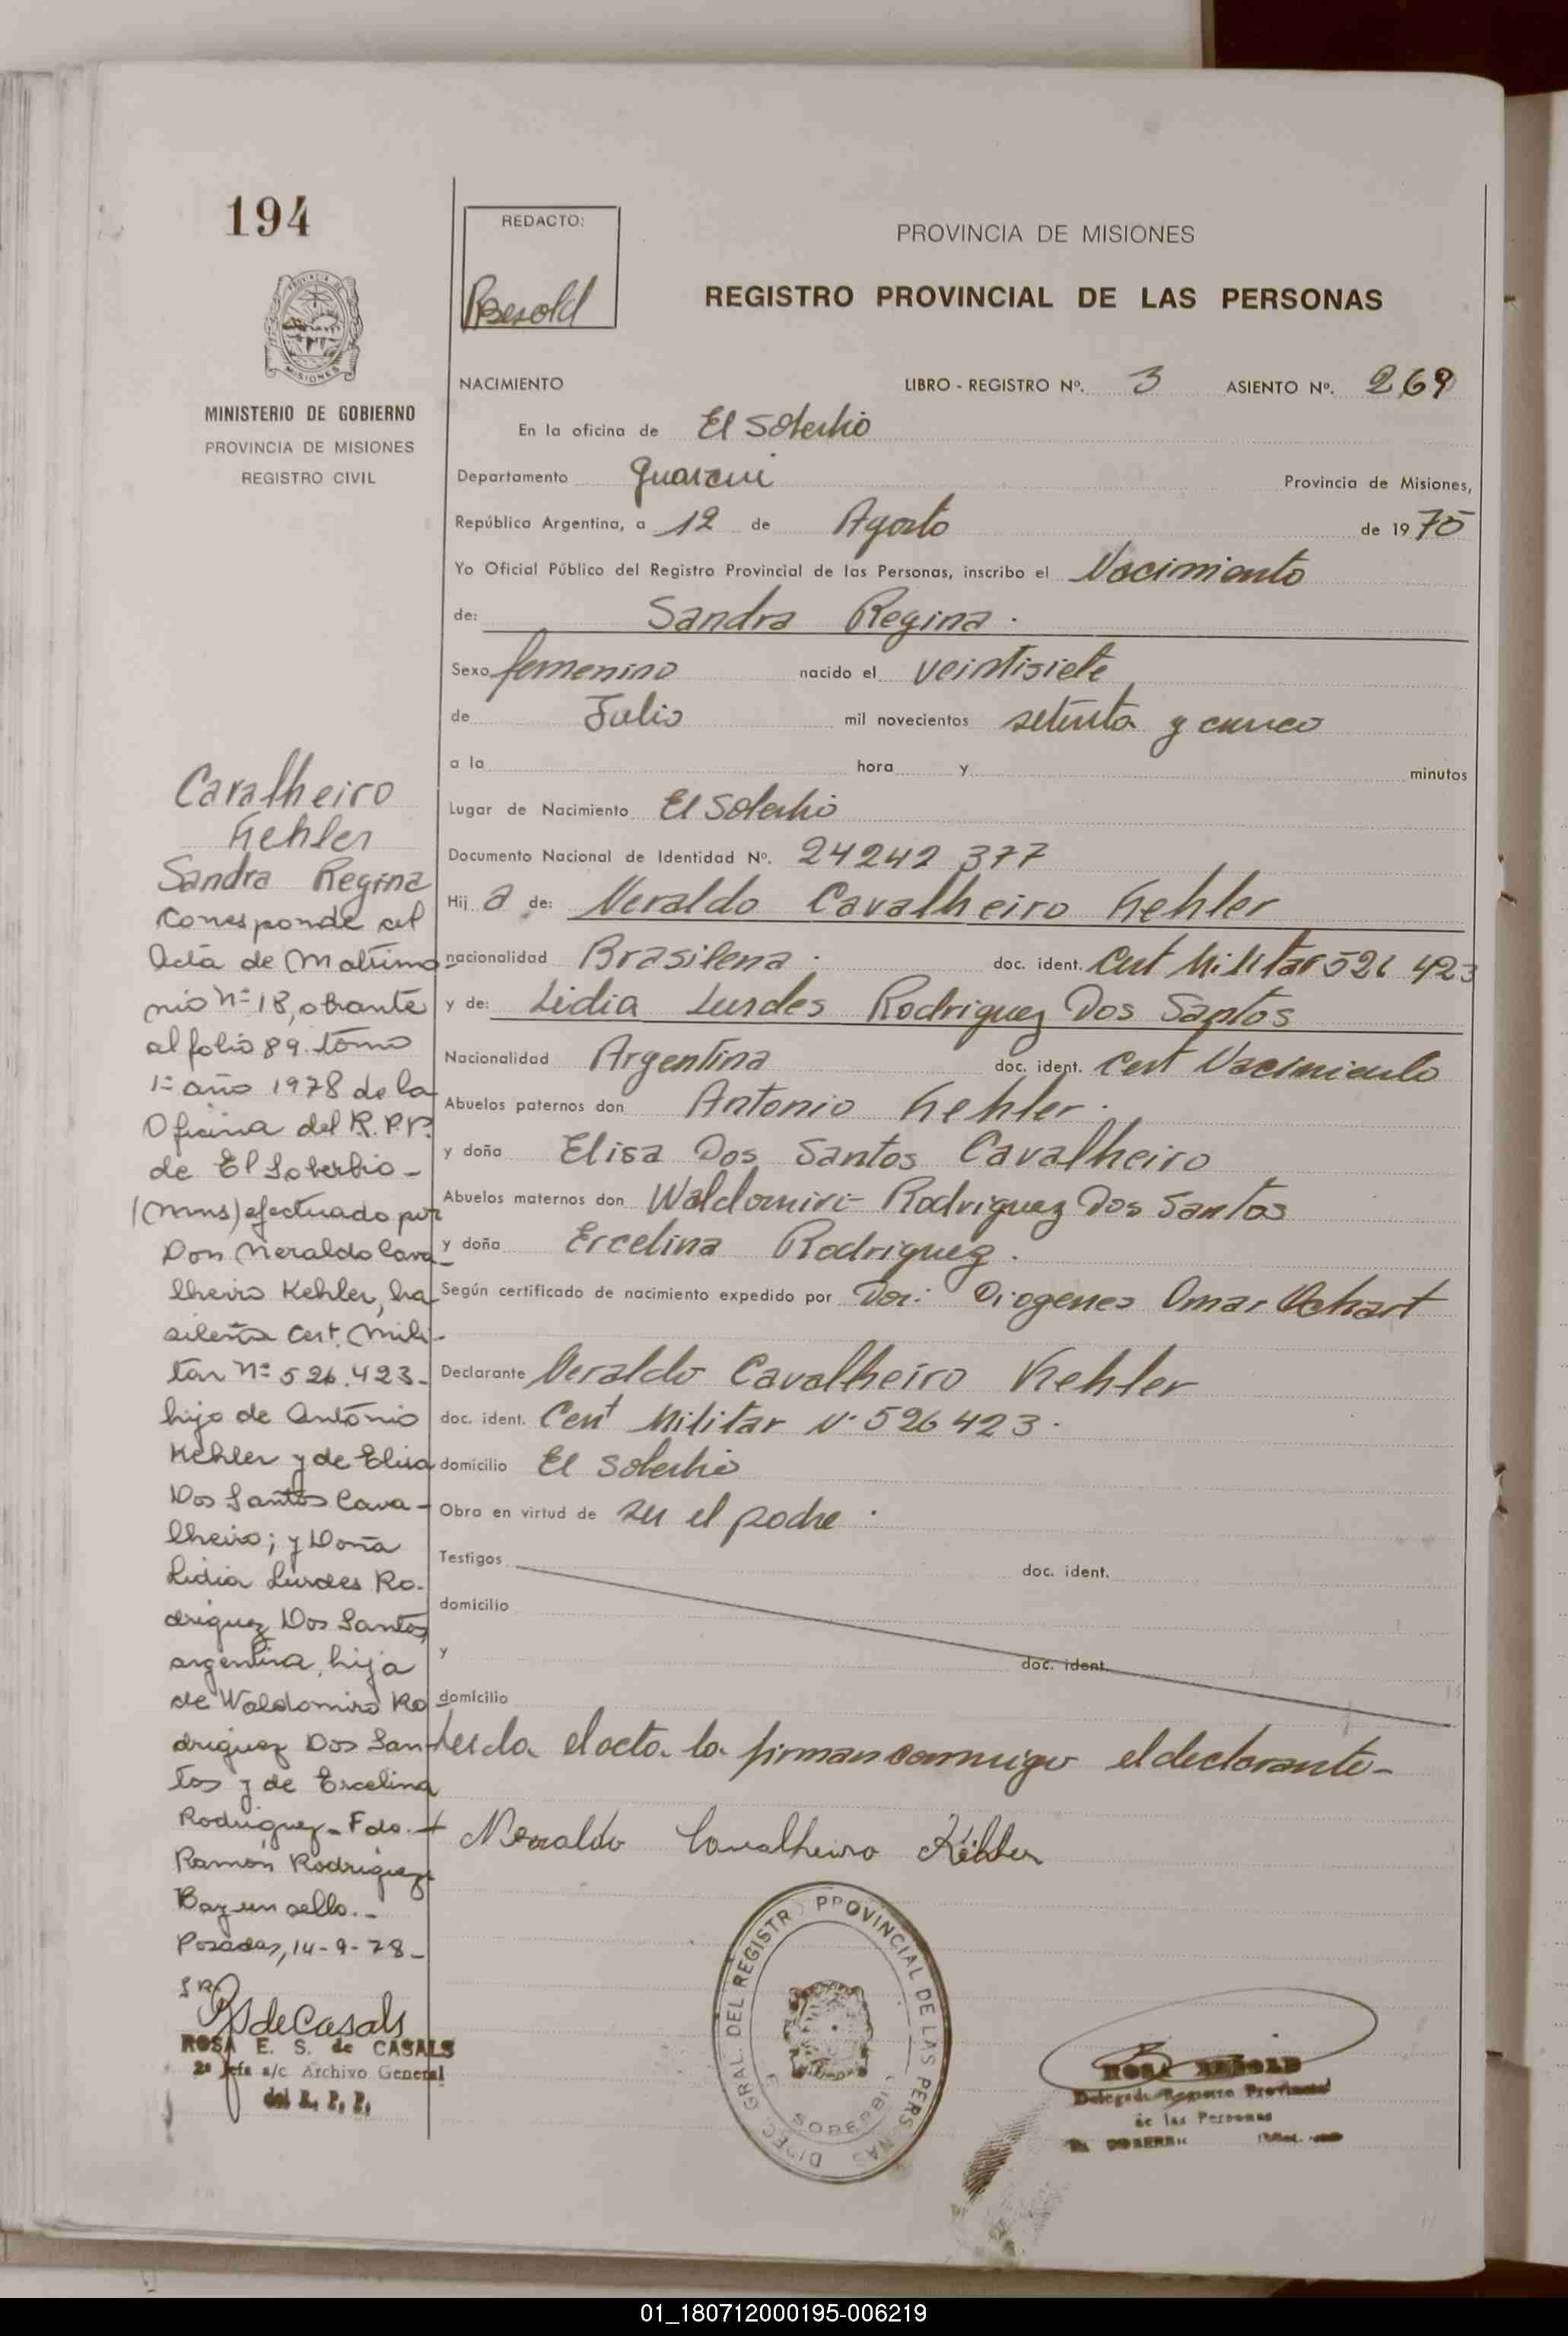 194
MISIONES
MINISTERIO DE GOBIERNO
PROVINCIA DE MISIONES
REGISTRO CIVIL
Cavalheiro
Kehler
Sandra Regina
Corresponde al
Acta de Matrimo-
nio nº 18, obrante
al folio 89. tomo
1º año 1978 de la
Oficina del R.P.P.
de El Soberbio-
(Mnes) efectuado por
Don Neraldo Cava-
lheiro Kehler, bra
sileña Cert. Mili-
tar nº 526.423-
hijo de António
Kehler y de Elisa
Dos Santos Cava-
lheiro; y Doña
Lidia Lurdes Ro-
driguez Dos Santos,
argentina, hija
de Waldomiro Ro
driguez Dos San-
tos y de Ercelina
Rodriguez - Fdo.-
Ramón Rodriguez
Hay un sello.-
Posadas, 14-9-78-
RSdeCasals
ROSA E. S. de CASALS
2º Jefe a/c Archivo General
del R. P. P.
REDACTO:
PROVINCIA DE MISIONES
REGISTRO PROVINCIAL DE LAS PERSONAS
NACIMIENTO LIBRO - REGISTRO Nº. 3 ASIENTO Nº. 269
En la oficina de El Soberbio
Departamento Guarani Provincia de Misiones,
República Argentina, a 12 de Agosto de 1975
Yo Oficial Público del Registro Provincial de las Personas, inscribo el Nacimiento
de: Sandra Regina.
Sexo femenino nacido el veintisiete
de Julio mil novecientos setenta y cinco
a la hora y minutos
Lugar de Nacimiento El Soberbio
Documento Nacional de Identidad Nº. 24242 377
Hija de: Neraldo Cavalheiro Kehler
nacionalidad Brasilena. doc. ident. Cert Militar 526 423
y de: Lidia Lurdes Rodriguez Dos Santos
Nacionalidad Argentina doc. ident. Cert Nacimiento
Abuelos paternos don Antonio Kehler.
y doña Elisa Dos Santos Cavalheiro
Abuelos maternos don Waldomiro Rodriguez Dos Santos
y doña Ercelina Rodriguez.
Según certificado de nacimiento expedido por Diogenes Omar
Declarante Neraldo Cavalheiro Kehler
doc. ident. Cert Militar Nº 526 423.
domicilio El Soberbio
Obra en virtud de ser el padre.
Testigos doc. ident.
domicilio
y doc. ident.
domicilio
Leida el acta la firman conmigo el declarante-
Neraldo Cavalheiro Kehler
DIREC. GRAL. DEL REGISTRO PROVINCIAL DE LAS PERSONAS
SOBERBIO
Delegada Registro Provincial
de las Personas